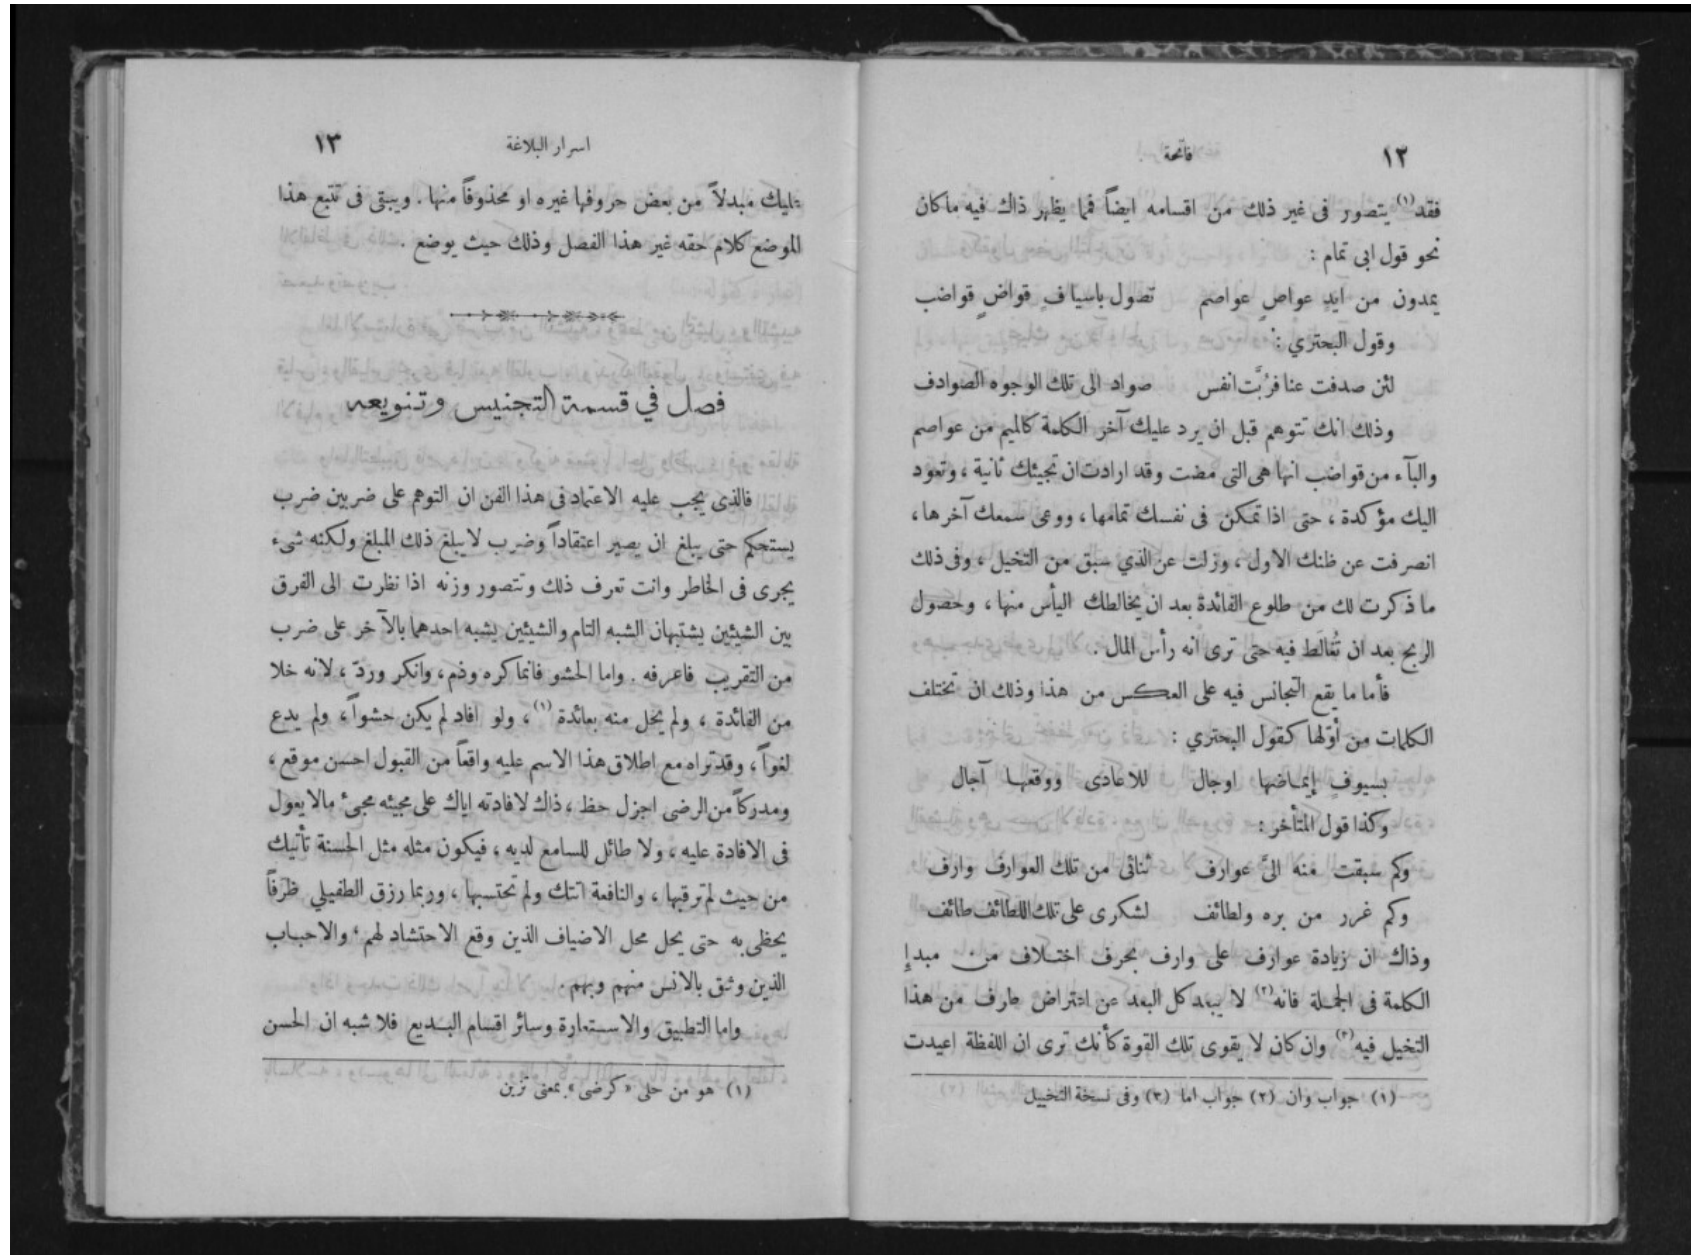 ١٢
فاتحة
فقد(١) يتصور فى غير ذلك من اقسامه ايضاً فما يظهر ذاك فيه ماكان
نحو قول ابى تمام :
يمدون من ايدٍ عواصٍ عواصم تصول باسيافٍ قواضٍ قواضب
وقول البحتري :
لئن صدفت عنا فرُبَّت انفس صواد الى تلك الوجوه الصوادف
وذلك انك تتوهم قبل ان يرد عليك آخر الكلمة كالميم من عواصم
والبآء من قواضب انها هى التى مضت وقد ارادت ان تجيئك ثانية ، وتعود
اليك مؤكدة ، حتى اذا تمكن فى نفسك تمامها ، ووعى سمعك آخرها ،
انصرفت عن ظنك الاول ، وزلت عن الذي سبق من التخيل ، وفى ذلك
ما ذكرت لك من طلوع الفائدة بعد ان يخالطك اليأس منها ، وحصول
الربح بعد ان تُغالَط فيه حتى ترى انه رأس المال .
فأما ما يقع التجانس فيه على العكس من هذا وذلك ان تختلف
الكلمات من أوّلها كقول البحتري :
بسيوفٍ إيماضها اوجال للاعادى ووقعها آجال
وكذا قول المتأخر :
وكم سبقت منه الىَّ عوارف ثنائى من تلك العوارف وارف
وكم غرر من بره ولطائف لشكرى على تلك اللطائف طائف
وذاك ان زيادة عوارف على وارف بحرف اختلاف من مبدإ
الكلمة فى الجملة فانه(٢) لا يبعد كل البعد عن اعتراض طرف من هذا
التخيل فيه(٣) وان كان لا يقوى تلك القوة كأنك ترى ان اللفظة اعيدت
(١) جواب وان (٢) جواب اما (٣) وفى نسخة التخييل
اسرار البلاغة
١٣
عليك مبدلاً من بعض حروفها غيره او محذوفاً منها . ويبقى فى تتبع هذا
الموضع كلام حقه غير هذا الفصل وذلك حيث يوضع .
فصل في قسمة التجنيس وتنويعه
فالذى يجب عليه الاعتماد فى هذا الفن ان التوهم على ضربين ضرب
يستحكم حتى يبلغ ان يصير اعتقاداً وضرب لا يبلغ ذلك المبلغ ولكنه شىء
يجرى فى الخاطر وانت تعرف ذلك وتتصور وزنه اذا نظرت الى الفرق
بين الشيئين يشتبهان الشبه التام والشيئين يشبه احدهما بالآخر على ضرب
من التقريب فاعرفه . واما الحشو فانما كره وذم ، وانكر وردّ ، لانه خلا
من الفائدة ، ولم يحل منه بعائدة(١) ، ولو افاد لم يكن حشواً ، ولم يدع
لغواً ، وقد تراه مع اطلاق هذا الاسم عليه واقعاً من القبول احسن موقع ،
ومدركاً من الرضى اجزل حظ ، ذاك لافادته اياك على مجيئه مجئ مالا يعول
فى الافادة عليه ، ولا طائل للسامع لديه ، فيكون مثله مثل الحسنة تأتيك
من حيث لم ترقبها ، والنافعة اتتك ولم تحتسبها ، وربما رزق الطفيلي ظرفاً
يحظى به حتى يحل محل الاضياف الذين وقع الاحتشاد لهم ، والاحباب
الذين وثق بالانس منهم وبهم .
واما التطبيق والاستعارة وسائر اقسام البديع فلا شبه ان الحسن
(١) هو من حلى «كرضى» بمعنى تزين